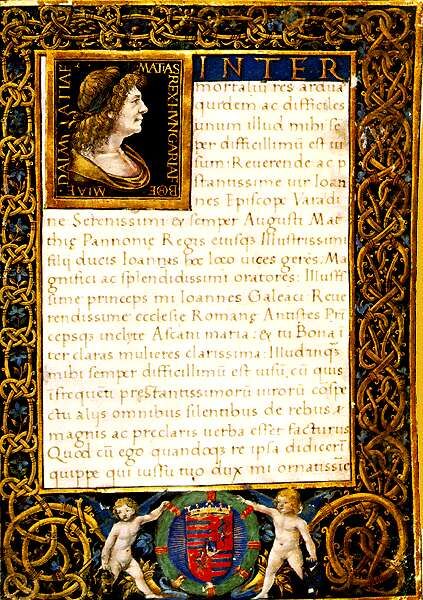 MATIAS
REX HVNGARIAE
BOE
MIAE
INTER
mortaliũ res ardua
quidem ac difficiles
unum illud mihi se
per difficillimũ est ui
sum: Reuerende ac p
stantissime uir Ioan
nes Episcope Varadi
ne Serenissimi & semper Augusti Mat
thie Pannonie Regis eiusq; Illustrissimi
filij ducis Ioannis hoc loco uices gerẽs: Ma
gnifici ac splendidissimi oratores: Illustris
sime princeps mi Ioannes Galeaci Reue
rendissime ecclesie Romane Antistes Pri
cepsq; inclyte Ascani maria: & tu Bona i
ter claras mulieres clarissima: Illud inq̃
mihi semper difficillimũ est uisũ, cũ quis
i frequẽti prestantissimorũ uirorũ cõspe
ctu alijs omnibus silentibus de rebus
magnis ac preclaris uerba esset facturus
Quod cũ ego quandoq; re ipsa didicerĩ
quippe qui iussu tuo dux mi ornatissie